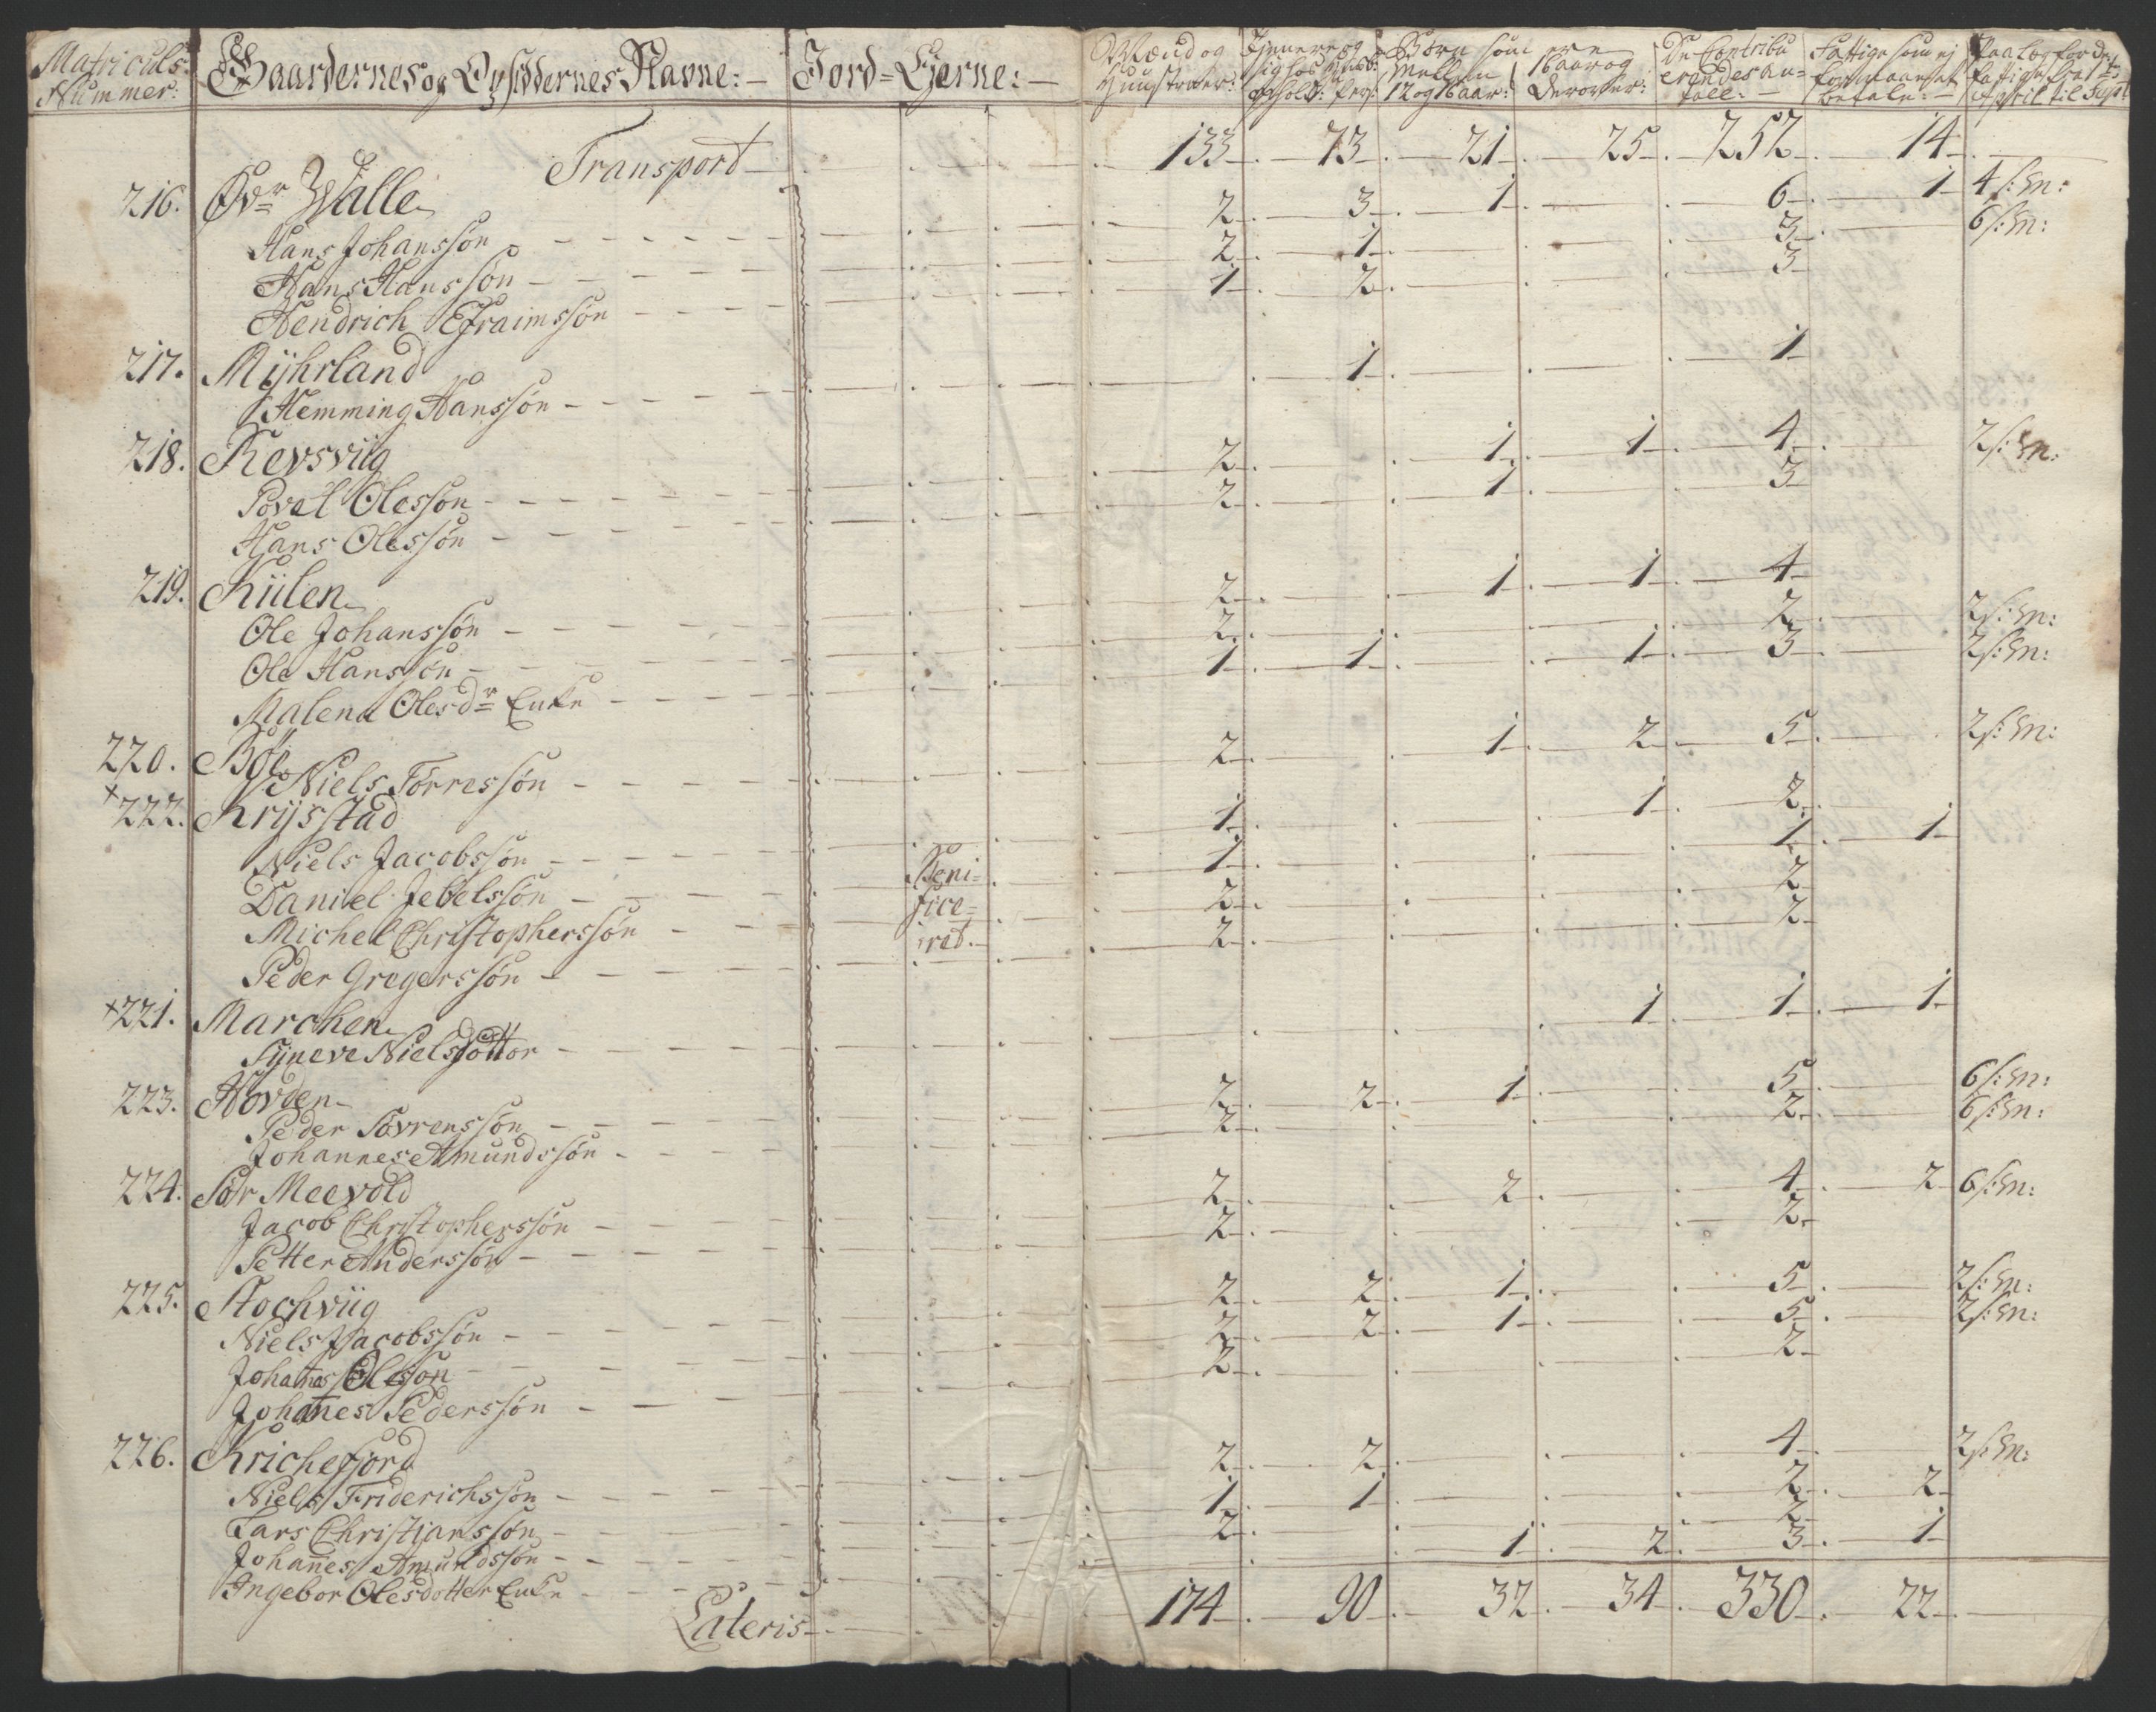 Matriculs Nummer: Gaardernes og Opsiddernes Navne:— Jord=Ejerne:— Mænd og Hustruer: Tjenere og Børn som ere Mellem 12 og 16 aar: 16 aar og derover: De Contribuerendes Antall:— Fattige som ej formaar at betale:—
Transport 133 73 21 25 252 14
216. Ovr Walle
Hans Johanssøn 2 3 1 6 1 4 s: m:
Hans Hanssøn 2 1 3 6 s: m:
Hendrich Efraimssøn 1 2 3
217. Mÿhrland
Hemming Hanssøn 1 1
218. Revsviig
Povel Olessøn 2 1 1 4 2 s: m:
Hans Olessøn 2 1 3
219. Kiilen
Ole Johanssøn 2 1 1 4
Ole Hanssøn 2 2 2 s: m:
Malena Olesdr Enke 1 1 1 3 2 s: m:
220. Bøe
Niels Torressøn 2 1 2 5 2 s: m:
+222. Krÿsstad
Niels Jacobssøn 1 1 2
Daniel Jebelssøn Beni= 1 1 1
Michel Christopherssøn fice= 2 2
Peder Gregerssøn iret. 2 2
+221. Marchen
Sÿneve Nielsdotter 1 1 1
223. Hovden
Peder Sørenssøn 2 2 1 5 6 s: m:
Johannes Amundssøn 2 2 6 s: m:
224. Sør Meevold
Jacob Christopherssøn 2 2 4 2 6 s: m:
Petter Anderssøn 2 2
225. Stochviig
Niels Jacobssøn 2 2 1 5 2 s: m:
Johannes Olessøn 2 2 1 5 2 s: m:
Johanes Pederssøn 2 2
226. Krichefjord
Niels Friderichssøn 2 2 4 2 s: m:
Lars Christjanssøn 1 1 2 2
Johanes Amundssøn 2 2
Ingebor Olesdotter Enke 1 2 3 1
Lateris 174 90 32 34 330 22